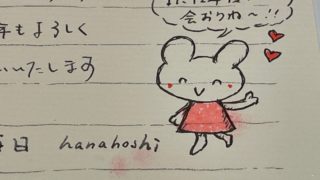 会おうね〜!!
年もよろしく
いいたします
毎日 hanahoshi